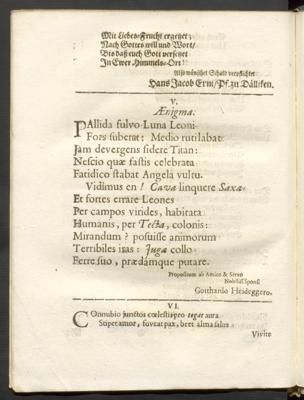 Mit Liebes-Frucht ergetzet;
Nach Gottes will und Wort/
Bis daß euch Gott versetzet
In Ewer Himmels-Ort!
Also wünschet Schuld verpflichtet
Hans Jacob Erni/Pf. zu Dälliken.
V.
Ænigma.
PAllida fulvo Luna Leoni
Fors suberat: Medio rutilabat
Jam devergens sidere Titan:
Nescio quæ fastis celebrata
Fatidico stabat Angela vultu.
Vidimus en! Cava linquere Saxa
Et fortes errare Leones
Per campos virides, habitata
Humanis, per Tecta, colonis:
Mirandum? posuisse animorum
Terribiles iras: Juga collo
Ferre suo, prædámque putare.
Propositum ab Amico & Servo
Nobiliss. Sponsi
Gotthardo Heideggero.
VI.
COnnubio junctos cœlesti pro tegat aura
Stipet amor, foveat pax, beet alma salus
Vivite